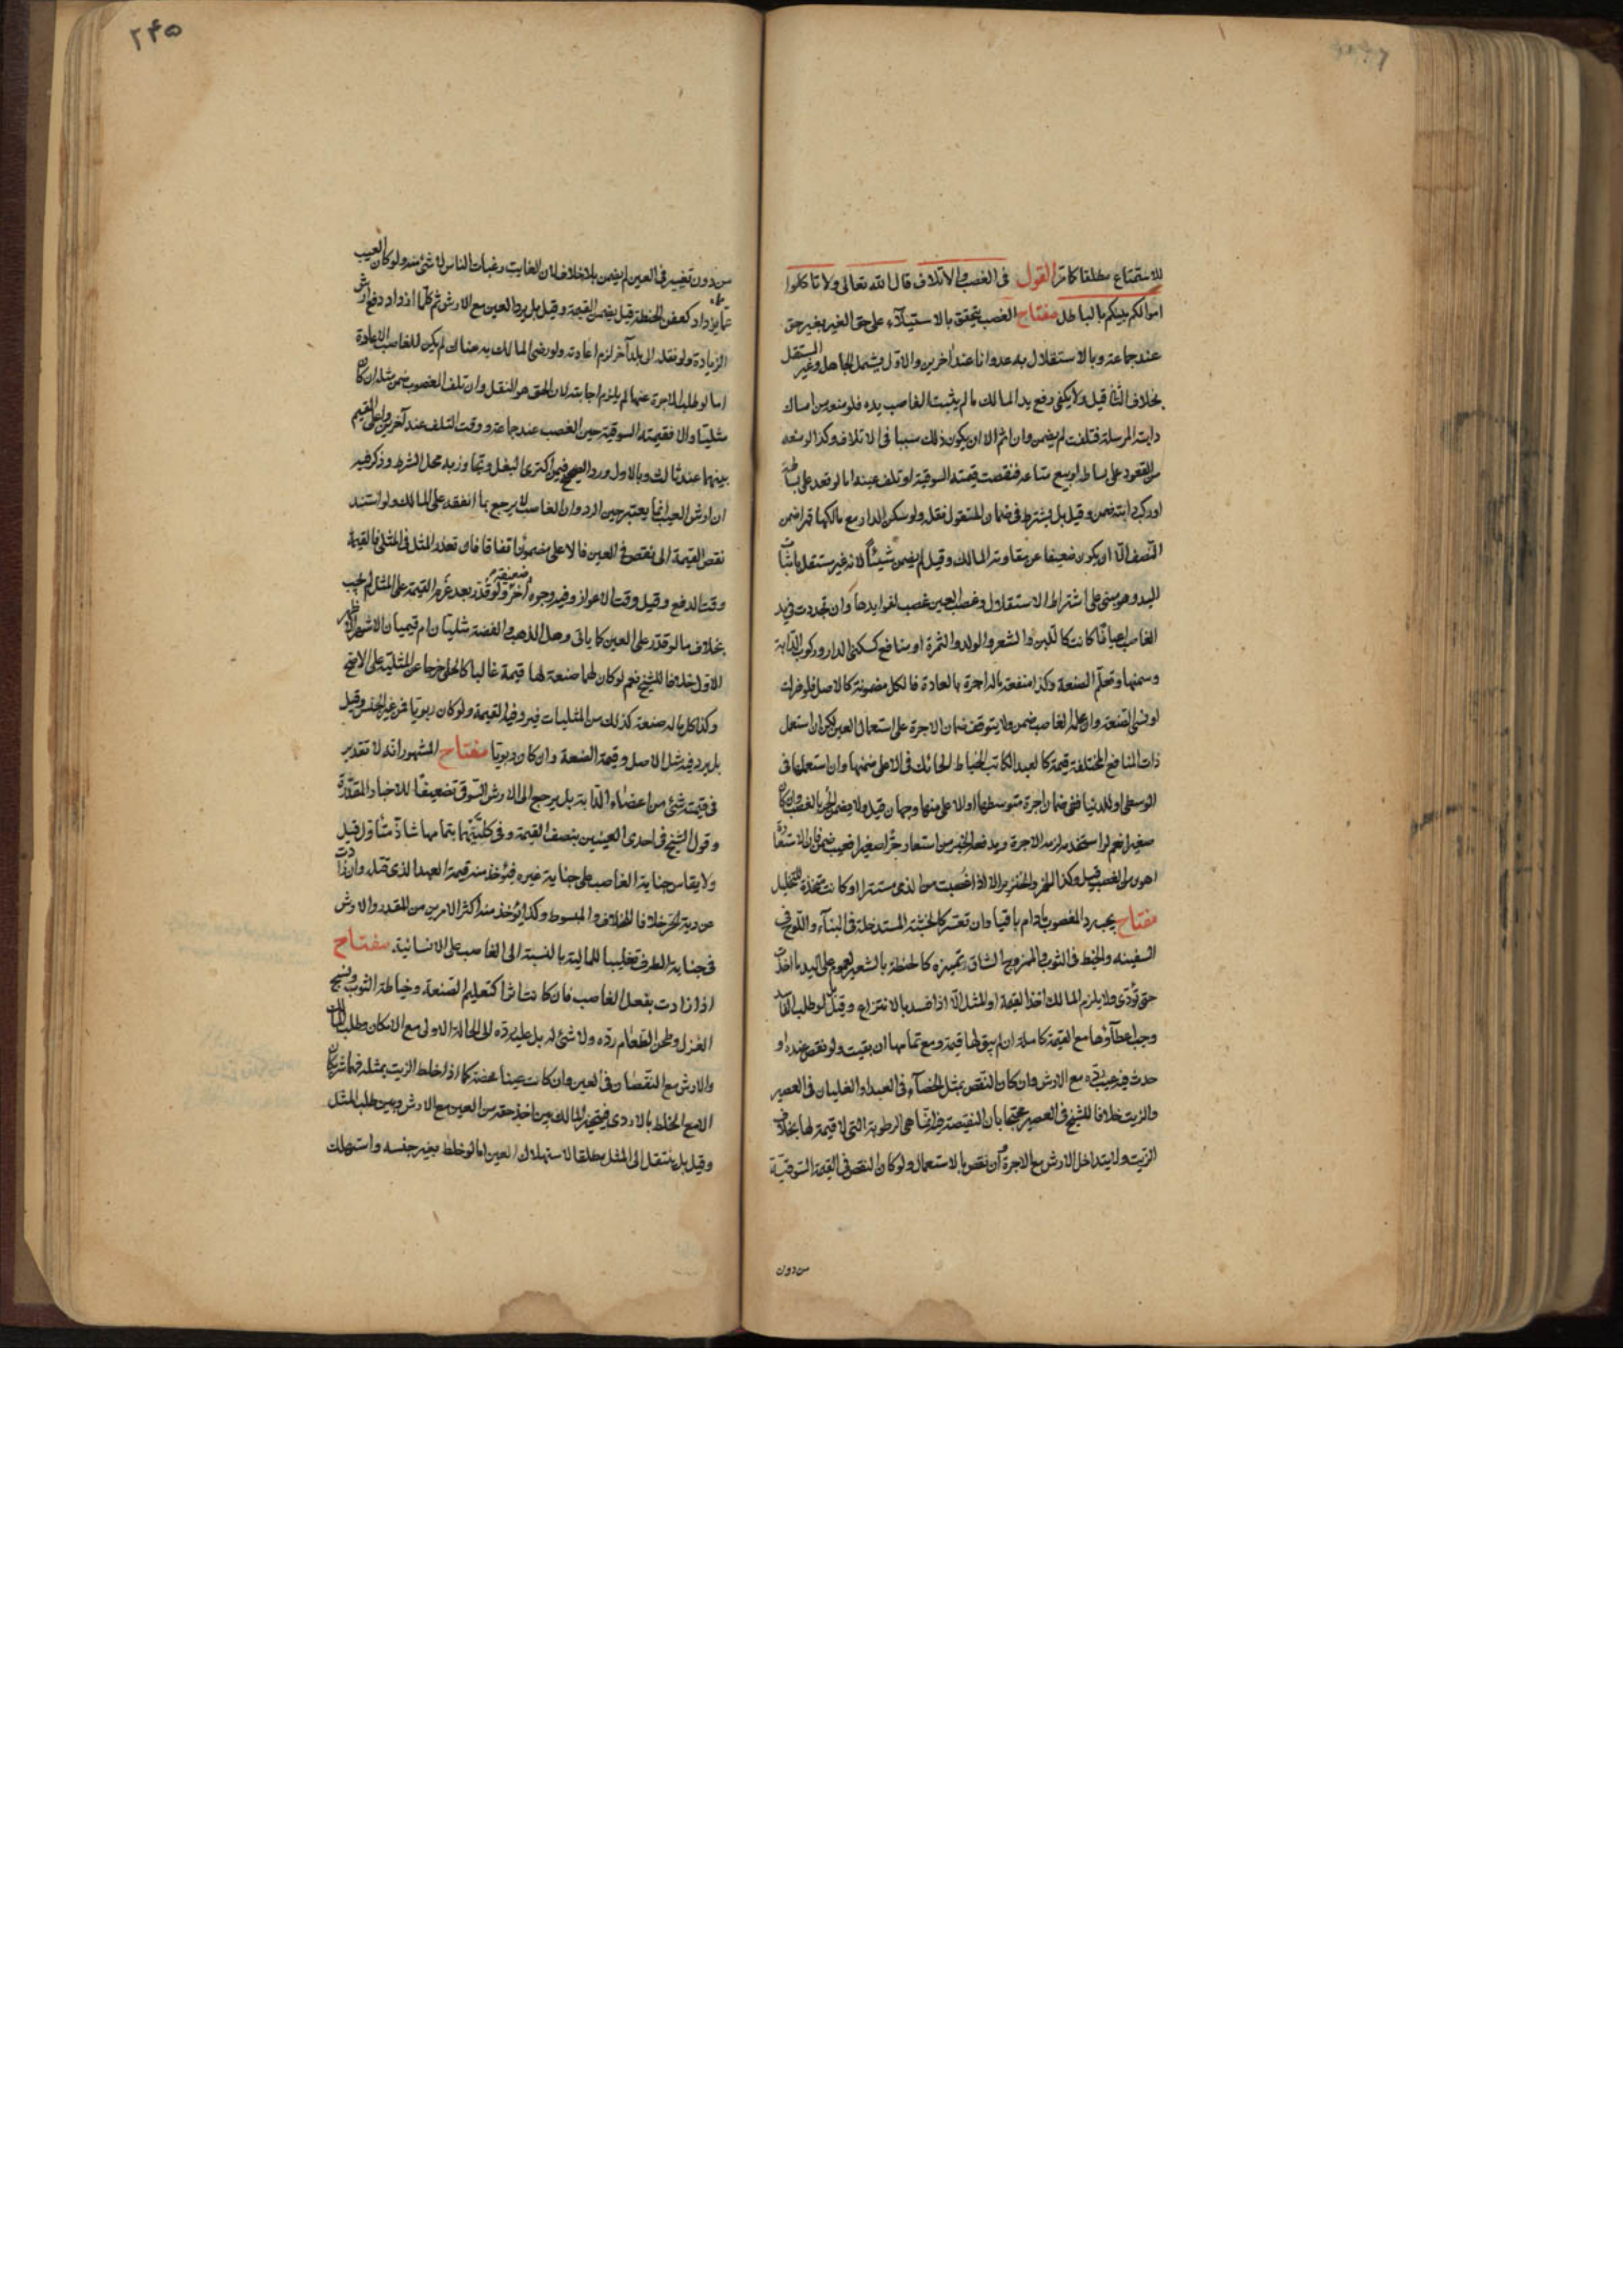 للاستمتاع مطلقا كما مرّ القول فى الغصب والاتلاف قال الله تعالى ولا تاكلوا
اموالكم بينكم بالباطل مفتاح الغصب يتحقق بالاستيلاء على حق الغير بغير حق
عند جماعة وبالاستقلال به عدوانا عند اخرين والاول يشمل الجاهل وغير المستقل
بخلاف الثانى قيل ولا يكفى رفع يد المالك ما لم يثبت الغاصب يده فلو منعه من امساك
دابته المرسلة فتلفت لم يضمن وان اثم الا ان يكون ذلك سببا فى الاتلاف وكذا لو منعه
من القعود على بساطه او بيع متاعه فنقصت قيمته السوقية او تلف عينه اما لو قعد على بساطه
او ركب دابته ضمن وقيل بل يشترط فى ضمان المنقول نقله ولو سكن الدار مع مالكها قهرا ضمن
النصف الّا ان يكون ضعيفا عن مقاومة المالك وقيل لم يضمن شيئاً لانه غير مستقل باثبات
اليد وهو مبنى على اشتراط الاستقلال وغصب العين غصب لفوايدها وان تجددت فى يد
الغاصب اعيانا كانت كاللبن والشعر والولد والثمرة او منافع كسكنى الدار وركوب الدابة
وسمنها وتعلّم الصنعة وكذا منفعة ماله اجرة بالعادة فالكل مضمونة كالاصل فلو هزلت
او نسى الصنعة وان علمه الغاصب ضمن ولا يتوقف ضمان الاجرة على استعمال العين لكن ان استعمل
ذات المنافع المختلفة قيمة كالعبد الكاتب الخياط الحائك فى الاعلى ضمنها وان استعملها فى
الوسطى او الدنيا ففى ضمان اجرة متوسطها او الاعلى منها وجهان قيل ولا يضمن الحر بالغصب وان كان
صغيرا نعم لو استخدمه لزمه الاجرة
اهون من الغصب قيل وكذا الخمر والخنزير الا اذا غصبت من الذمى مستترا او كانت متخذة للتخليل
مفتاح يجب رد المغصوب ما دام باقيا وان تعسّر كالخشبة المستدخلة فى البناء واللوح فى
السفينه والخيط فى الثوب والممزوج الشاق تميزه كالحنطة بالشعير لعموم على اليد ما اخذت
حتى تؤدى ولا يلزم المالك اخذ القيمة او المثل الّا اذا فسد بالانتزاع وقيل لو طلب الفاسد
وجب اعطاؤها مع القيمة كاملة ان لم يبق لها قيمة ومع تمامها ان بقيت ولو نقص عنده او
حدث فيه عيب ردّه مع الارش وان كان النقص بمثل الخصاء فى العبد او الغليان فى العصير
والزيت خلافا للشيخ فى العصير محتجا بان النقيصة فيه انّما هى الرطوبة التى لا قيمة لها بخلاف
الزيت ولا يتداخل الارش مع الاجرة وان نقص بالاستعمال ولو كان النقص فى القيمة السوقيّة
من دون
٢۴۵
من دون تغيير فى العين لم يضمن بلا خلاف لان الفايت رغبات الناس لا شئ منه ولو كان العيب
مما يزداد كعفن الحنطة قيل يضمن القيمة وقيل بل يرد العين مع الارش ثم كلما ازداد دفع ارش
الزيادة ولو نقله الى بلد آخر لزم اعادته ولو رضى المالك به هناك لم يكن للغاصب الاعادة
اما لو طلب الاجرة عنها لم يلزم اجابته لان الحق هو النقل وان تلف المغصوب ضمن مثله ان كان
مثليّا والا فقيمته السوقية حين الغصب عند جماعة ووقت التلف عند آخرين واعلى القيم
بينهما عند ثالث وبالاول ورد الصحيح فيمن اكترى البغل وتجاوز به محل الشرط وذكر فيه
ان ارش العيب انما يعتبر حين الرد وان الغاصب لا يرجع بما انفقه على المالك ولو استند
نقص القيمة الى نقص فى العين فالاعلى مضمون اتفاقا فان تعذر المثل فى المثلى فالقيمة
وقت الدفع وقيل وقت الاعواز وفيه وجوه اخر ضعيفة ولو قدر بعد غرم القيمة على المثل لم يجب
بخلاف ما لو قدر على العين كما ياتى وهل الذهب والفضة مثليان ام قيميان الاشهر الاظهر
الاول خلافا للشيخ نعم لو كان لهما صنعة لها قيمة غالبا كالحلى خرجا عن المثلية على الاصح
وكذا كل ما له صنعة كذلك من المثليات فيرد فيه القيمة ولو كان ربويا فمن غير الجنس وقيل
بل يرد فيه مثل الاصل وقيمة الصنعة وان كان ربويا مفتاح المشهور انه لا تقدير
فى قيمة شئ من اعضاء الدابة بل يرجع الى الارش السوقى تضعيفاً للاخبار المقدّرة
وقول الشيخ فى احدى العينين بنصف القيمة وفى كلتيهما بتمامها شاذ متأوّل قيل
ولا يقاس جناية الغاصب على جناية غيره فيؤخذ منه قيمة العبد الذى قتله وان زادت
عن دية الحر خلافا للخلاف والمبسوط وكذا يؤخذ منه اكثر الامرين من المقدر والارش
فى جناية الطرف تغليبا للمالية بالنسبة الى الغاصب على الانسانية مفتاح
اذا زادت بفعل الغاصب فان كانت اثرا كتعليم الصنعة وخياطة الثوب ونسج
الغزل وطحن الطعام ردّه ولا شئ له بل عليه ردّه الى الحالة الاولى مع الامكان وطلب المالك
والارش مع النقصان فى العين وان كانت عينا محضة كما اذا خلط الزيت بمثله فهما شريكان
الا مع الخلط بالاردى فيتخير المالك بين اخذ حقه من العين مع الارش وبين طلب المثل
وقيل بل ينتقل الى المثل مطلقا لاستهلاك العين اما لو خلط بغير جنسه واستهلك